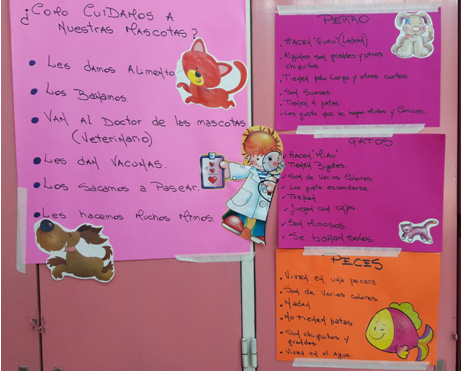 ¿Como Cuidamos a
Nuestras Mascotas?
• Les damos Alimento
• Los Bañamos.
• Van al Doctor de las mascotas
(Veterinario)
• Les dan Vacunas.
• Los sacamos a Pasear.
• Les hacemos Muchos Mimos.
PERRO
• Hacen "Guau" (Ladran)
• Algunos son grandes y otros
chiquitos
• Tienen pelo largo y otros cortos
• Son Suaves
• Tienen 4 patas
• Les gusta que le hagan Mimos y Caricias
GATOS
• Hacen "Miau"
• Tienen Bigotes
• Son de Varios Colores
• Les gusta esconderse
• Trepan
• Juegan con cajas
• Son Mimosos
• Se bañan solos
PECES
• Viven en una pecera
• Son de Varios colores
• Nadan
• No tienen patas
• Son chiquitos y
grandes
• Viven en el Agua